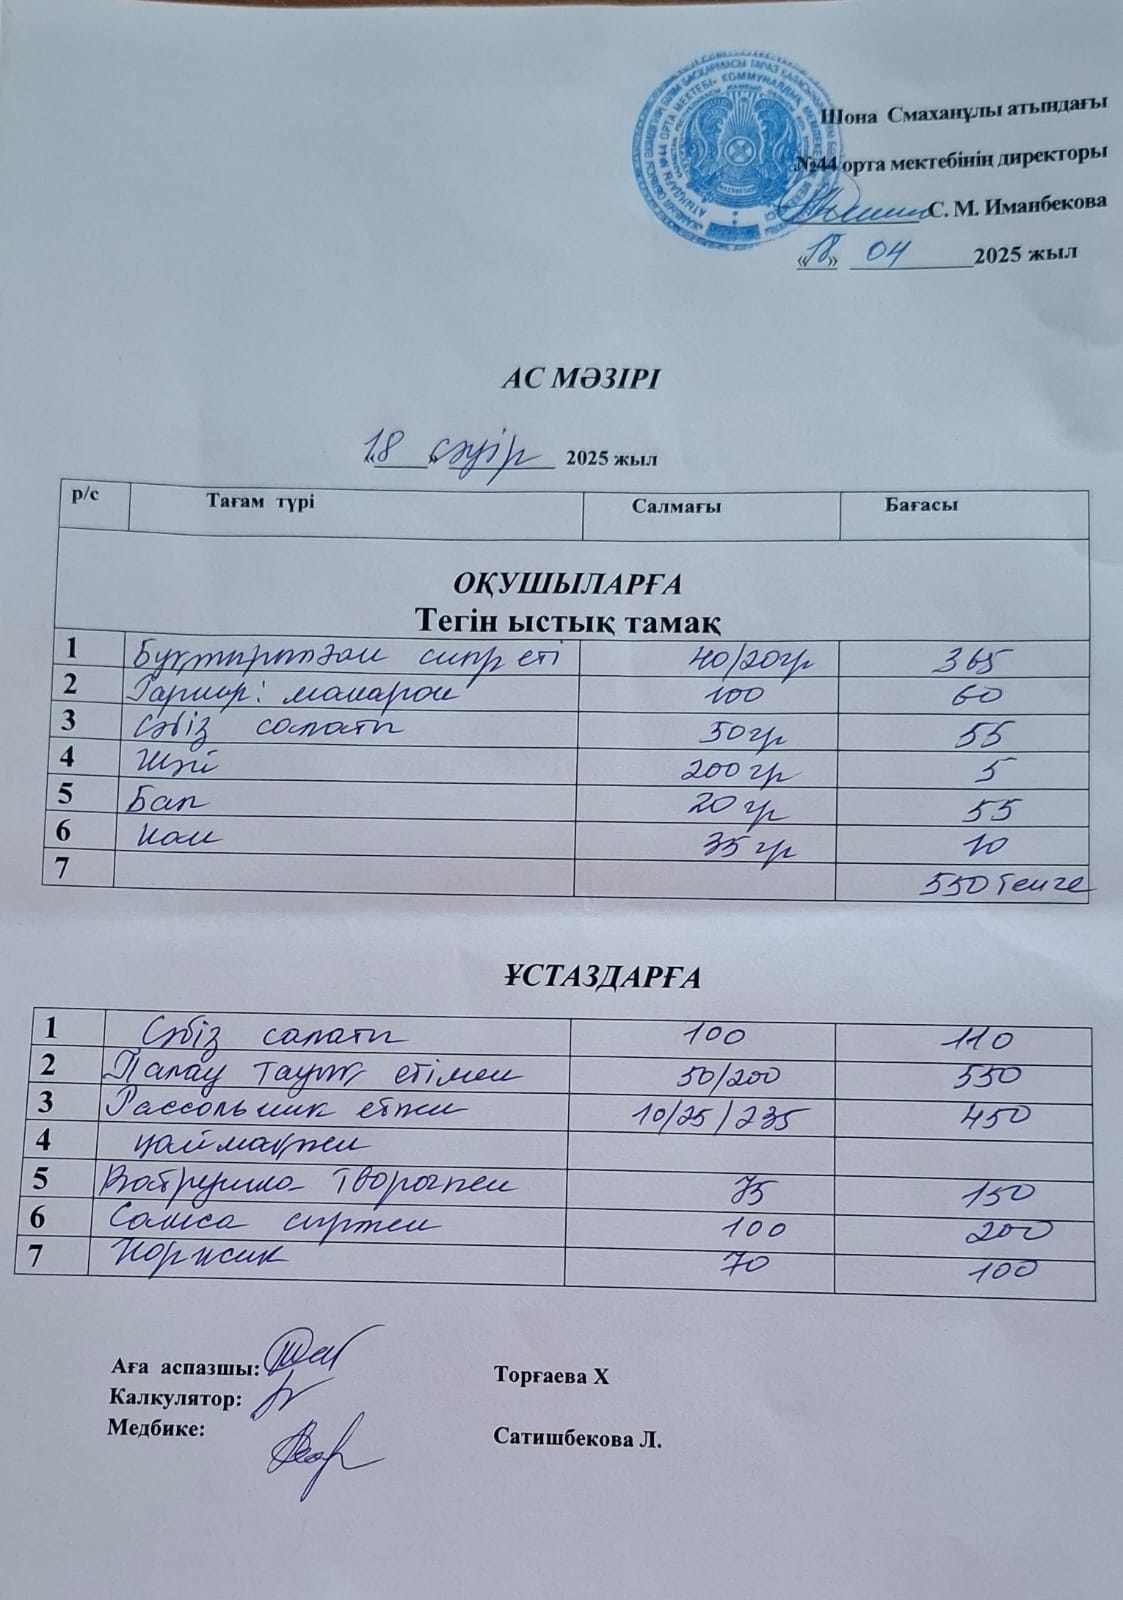 Шона Смаханұлы атындағы
№44 орта мектебінің директоры
С. М. Иманбекова
«18» 04 2025 жыл
АС МӘЗІРІ
«18» сәуір 2025 жыл
р/с Тағам түрі Салмағы Бағасы
ОҚУШЫЛАРҒА
Тегін ыстық тамақ
1 Бұқтырылған сиыр еті 40/20гр 365
2 Гарнир: макарон 100 60
3 Сәбіз салаты 50гр 55
4 Шәй 200 гр 5
5 Бал 20 гр 55
6 нан 35 гр 10
7 550 тенге
ҰСТАЗДАРҒА
1 Сәбіз салаты 100 110
2 Палау тауық етімен 50/200 550
3 Рассольник етпен 10/25/235 450
4 қаймақпен
5 Ватрушка творогпен 75 150
6 Самса сырмен 100 200
7 Коржик 70 100
Аға аспазшы: Торғаева Х
Калкулятор:
Медбике: Сатишбекова Л.